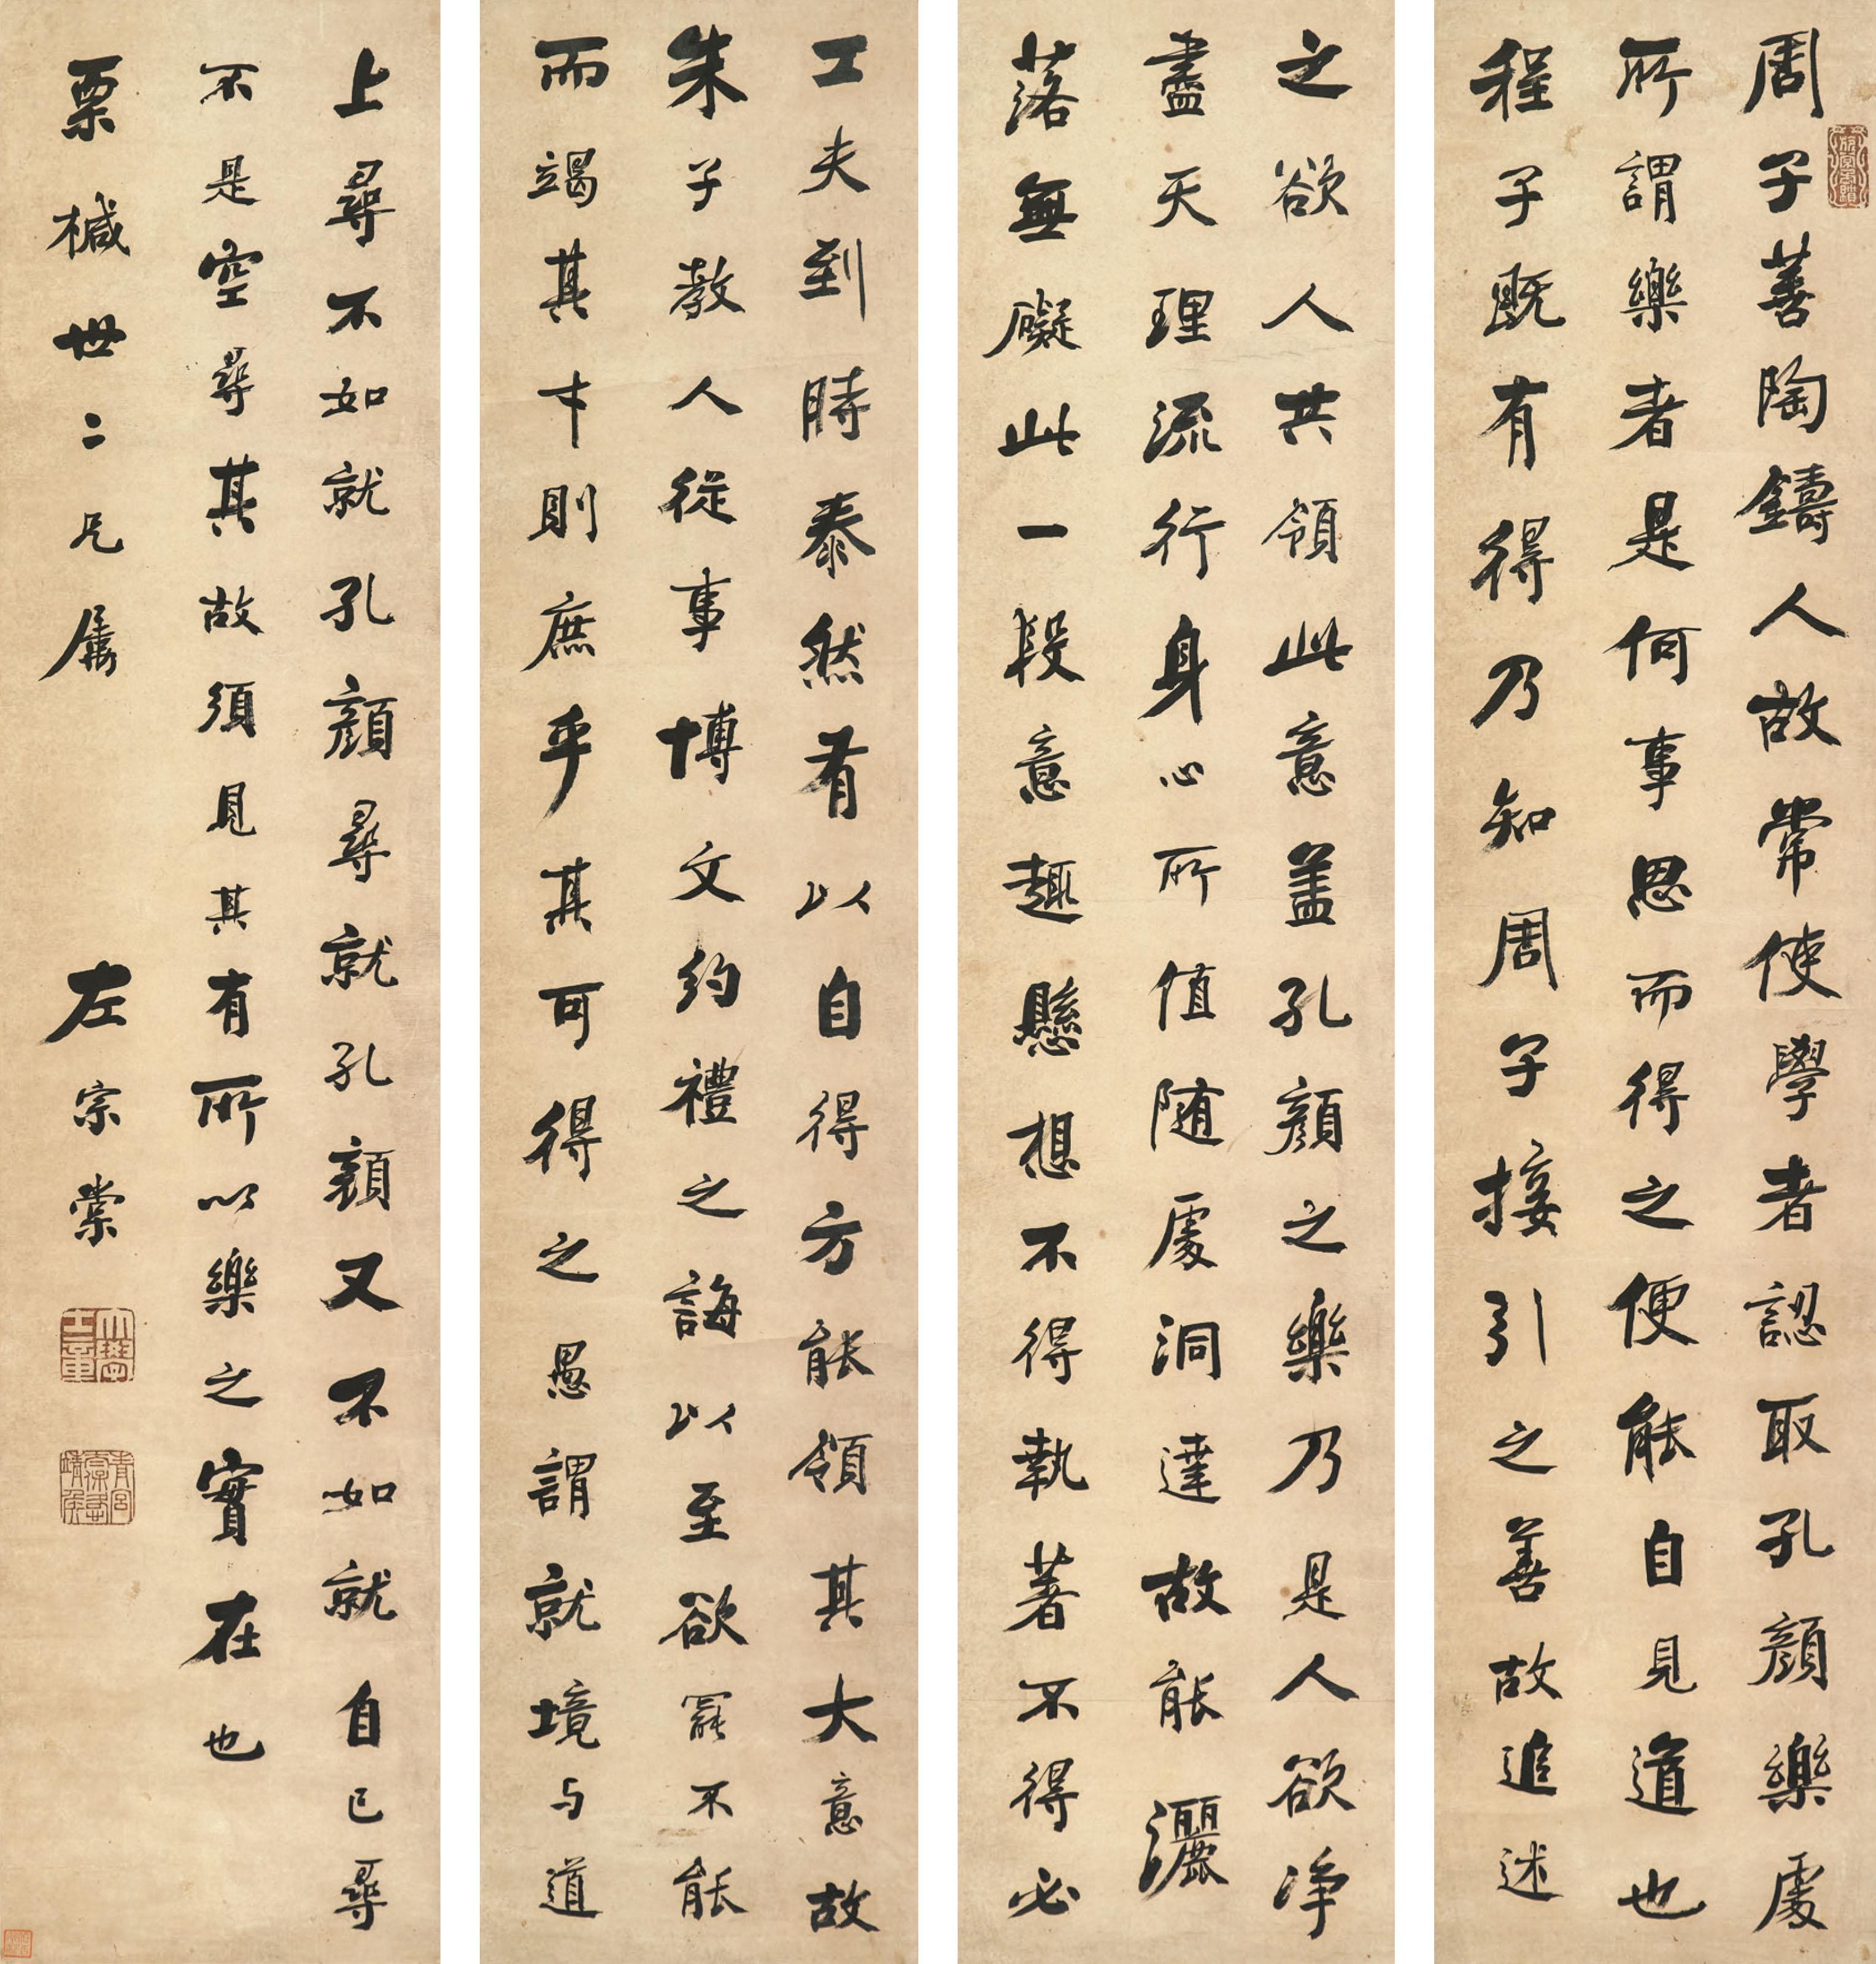 周子善陶鑄人故常使學者認取孔顏樂處
所謂樂者是何事思而得之便能自見道也
程子既有得乃知周子接引之善故追述
之欲人共領此意蓋孔顏之樂乃是人欲淨
盡天理流行身心所值随處洞達故能灑
落無礙此一段意趣懸想不得執著不得必
工夫到時泰然有以自得方能領其大意故
朱子教人從事博文約禮之誨以至欲罷不能
而竭其才則庶乎其可得之愚謂就境与道
上尋不如就孔顏尋就孔顏又不如就自己尋
不是空尋其故須見其有所以樂之實在也
栗樾世二兄屬
左宗棠
大學士章
青宮太保恪靖侯